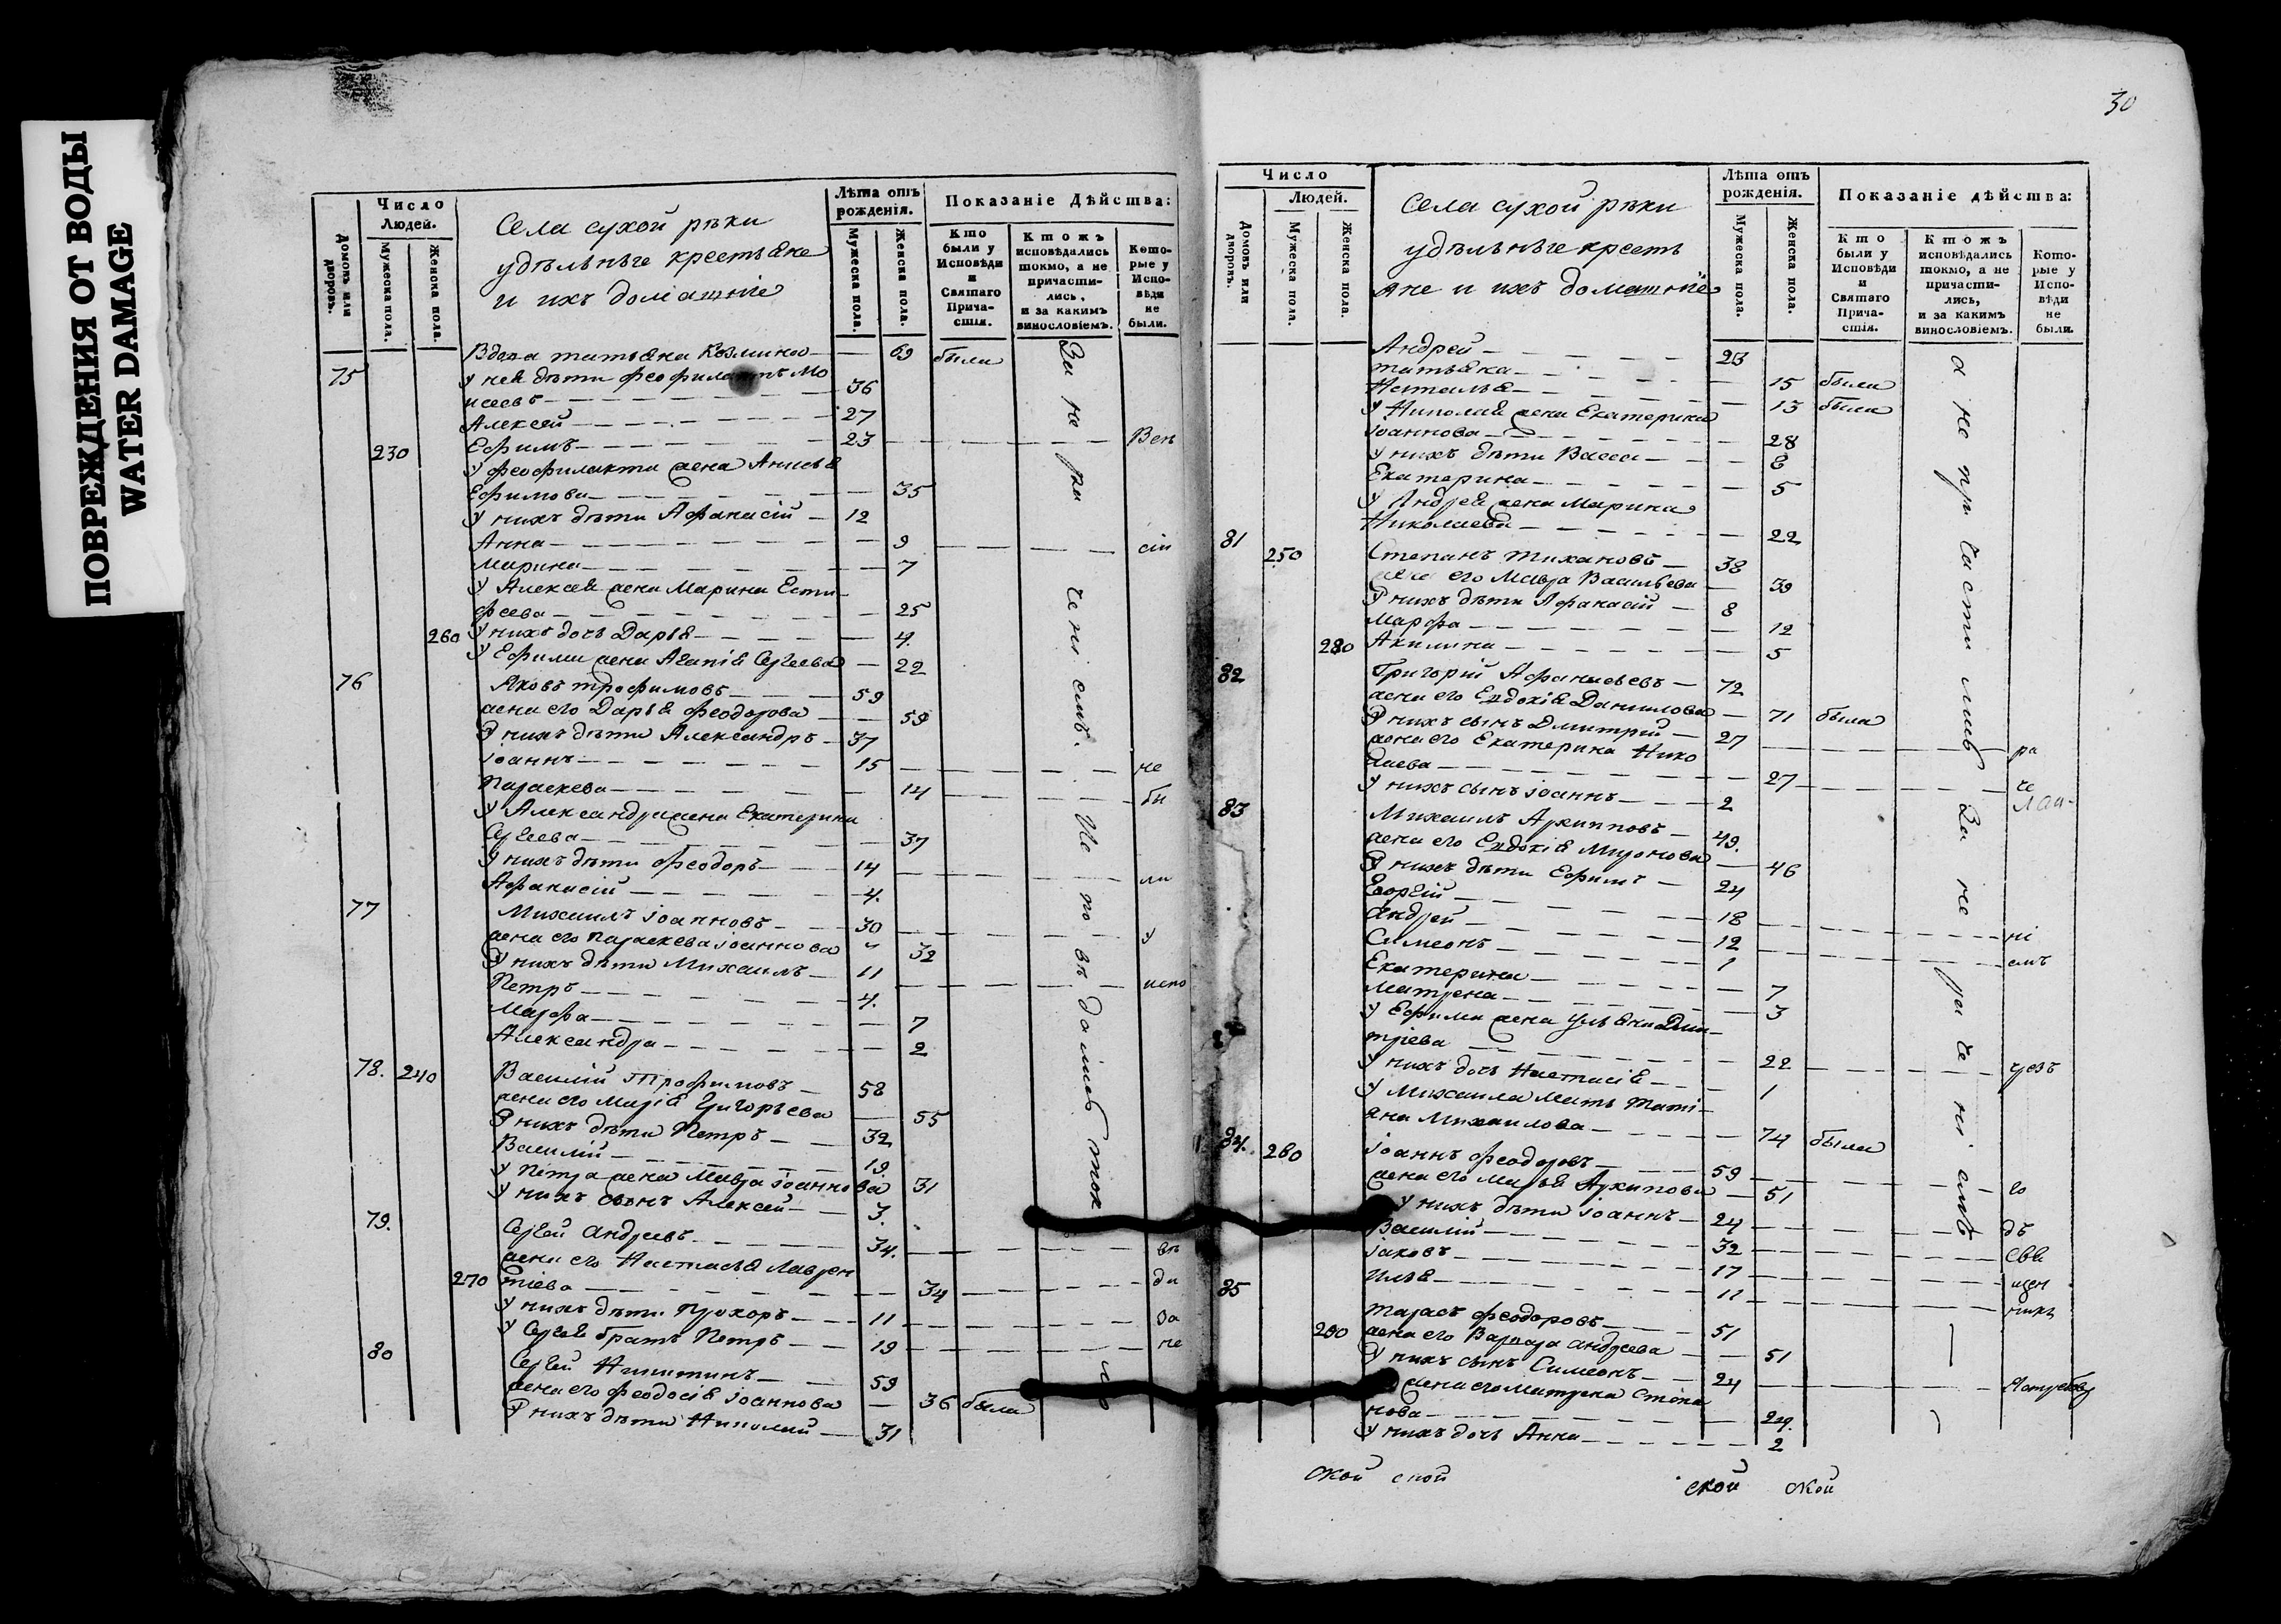 ПОВРЕЖДЕНИЯ ОТ ВОДЫ
WATER DAMAGE
Число
Людей.
Домовъ или дворовъ.
Мужеска пола.
Женска пола.
Села сухой рѣки
удѣльныѣ крестьяне
и ихъ домашніе
Лѣта отъ рожденія.
Мужеска пола.
Женска пола.
Показаніе дѣйства:
Кто были у Исповѣди и Святаго Прича- стія.
Ктожъ исповѣдались токмо, а не причасти- лись, и за какимъ винословіемъ.
Кото- рые у Испо- вѣди не были.
Вдова татьяна Козмина — 69 были
75 У нея дѣти феофилактъ Мо
исеевъ — 36
Алексей — 27
230 Ефимъ — 23
У феофилакта жена
Ефимова — 35
У нихъ дѣти Афанасій — 12
Анна — 9
Марина — 7
У Алексея жена Марина Евти
феева — 25
260 У нихъ дочь Дарья — 4.
У Ефима жена Агапія Сергеева — 22
76 Яковъ трофимовъ — 59
жена его Дарья феодорова — 59
У нихъ дѣти Александръ — 37
іоаннъ — 15 не
Параскева — 14 бы
У Александра жена Екатерина
Сергеева — 37
У нихъ дѣти феодоръ — 14 ли
Афанасій — 4.
77 Михаилъ іоанновъ — 30 у
жена его параскева іоаннова " 32
У нихъ дѣти Михаилъ — 11 испо
Петръ — 4.
Марфа — 7
Александра — 2
78. 240 Василій Трофимовъ — 58
жена его Марія Григорьева — 55
У нихъ дѣти Петръ — 32
Василій — 19.
У Петра жена Мавра іоаннова 31
У нихъ сынъ Алексей — 3.
79. Сергей андреевъ — 34. вѣ
жена его Настасья Лаврен
270 тіева — 34 ди
У нихъ дѣти Прохоръ — 11 за
У Сергея братъ Петръ — 19 не
80 Сергей Никитинъ — 59
жена его феодосія іоаннова — 36 была
У нихъ дѣти Николай — 31
За не ра че ні емъ.
30
Число
Людей.
Домовъ или дворовъ.
Мужеска пола.
Женска пола.
Села сухой рѣки
удѣльныѣ кресть
яне и ихъ домашніе
Лѣта отъ рожденія.
Мужеска пола.
Женска пола.
Показаніе дѣйства:
Кто были у Исповѣди и Святаго Прича- стія.
Ктожъ исповѣдались токмо, а не причасти- лись, и за какимъ винословіемъ.
Кото- рые у Испо- вѣди не были.
Андрей — 23
татьяна — 15 были
Наталья — 13 были
У Николая жена Екатерина
іоаннова — 28
У нихъ дѣти Васса — 8
Екатерина — 5
У Андрея жена Марина
Николаева — 22
81 250 Степанъ тихановъ — 38
жена его Мавра Васильева — 39
У нихъ дѣти Афанасій — 8
Марфа — 12
280 Акилина — 5
82 Григорій Афанасьевъ — 72
жена его Евдокія Данилова — 71 была
У нихъ сынъ Дмитрій — 27 ра
жена его Екатерина Нико
лаева — 27 че
У нихъ сынъ іоаннъ — 2
83 Михаилъ Архипповъ — 49.
жена его Евдокія Миронова — 46
У нихъ дѣти Ефимъ — 24
Георгій — 18 ні
андрей — 12 емъ
Симеонъ — 1
Екатерина — 7
Матрена — 3
У Ефима жена Ульяна Дми
тріева — 22
У нихъ дочь Настасія — 1
У Михаила мать тати
яна Михаилова — 74 была
84. 260 іоаннъ феодоровъ — 59 го
жена его Марья Архипова — 51
У нихъ дѣти іоаннъ — 24 дъ
Василій — 32 свя
іаковъ — 17 щен
Илья — 11 никъ
85 Тарасъ феодоровъ — 51
290 жена его Варвара андреева — 51
У нихъ сынъ Симеонъ — 24
жена его матрена Степа
нова — 24.
У нихъ дочь Анна — 2
а не при части лись За не ра че ні емъ
ской ской ской ской